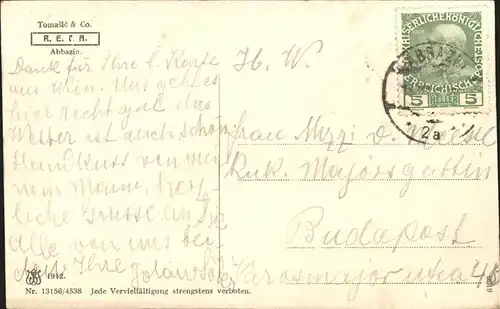 Tomašić & Co.
R. E. T. A.
Abbazia.
Dank für Ihre l. Karte
aus Wien. Uns geht es
hier recht gut, das
Wetter ist auch schön
Handkuss von mei-
nem Mann, herz-
liche Grüsse an Sie
Alle von uns bei-
den Ihre
H. W.
KAISERLICHE KÖNIGL.
ÖSTERREICHISCHE POST
5 HELLER 5
ABBAZIA
2a
Frau Mizzi v.
k.u.k. Majorsgattin
Budapest
Városmajor utca 48
1912.
Nr. 13156/4538 Jede Vervielfältigung strengstens verboten.